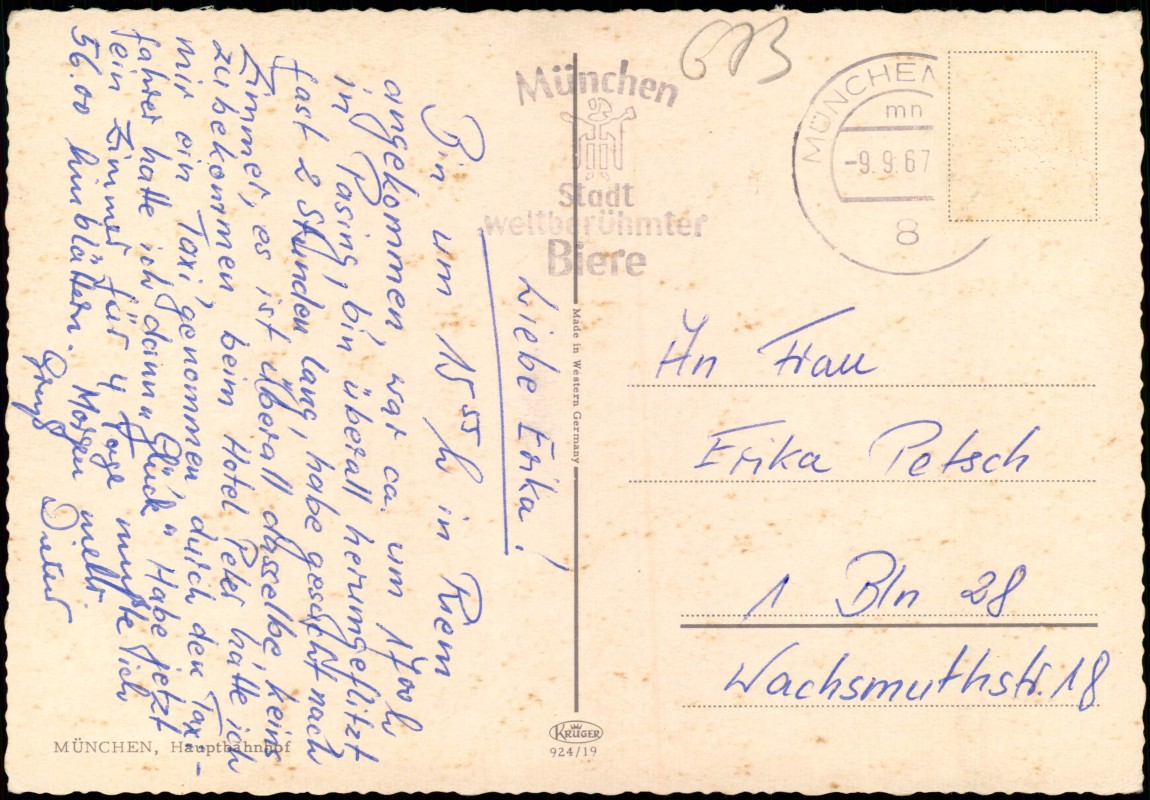 München
Stadt
weltberühmter
Biere
MÜNCHEN
mn
-9.9.67
8
Liebe Erika!
Bin um 15⁵⁵h in Riem
angekommen, war ca. um 17⁰⁰h
in Pasing, bin überall herumgeflitzt
fast 2 Stunden lang, habe gesucht nach
Zimmer, es ist überall dasselbe, keins
zubekommen, beim Hotel Peter hatte ich
mir ein Taxi genommen durch den Tax-
fahrer hatte ich dann „Glück" Habe jetzt
ein Zimmer für 4 Tage mußte ich
56.00 hinblättern. Morgen mehr
Gruß Dieter
An Frau
Erika Petsch
1 Bln 28
Wachsmuthstr. 18
Made in Western Germany
MÜNCHEN, Hauptbahnhof
KRÜGER
924/19